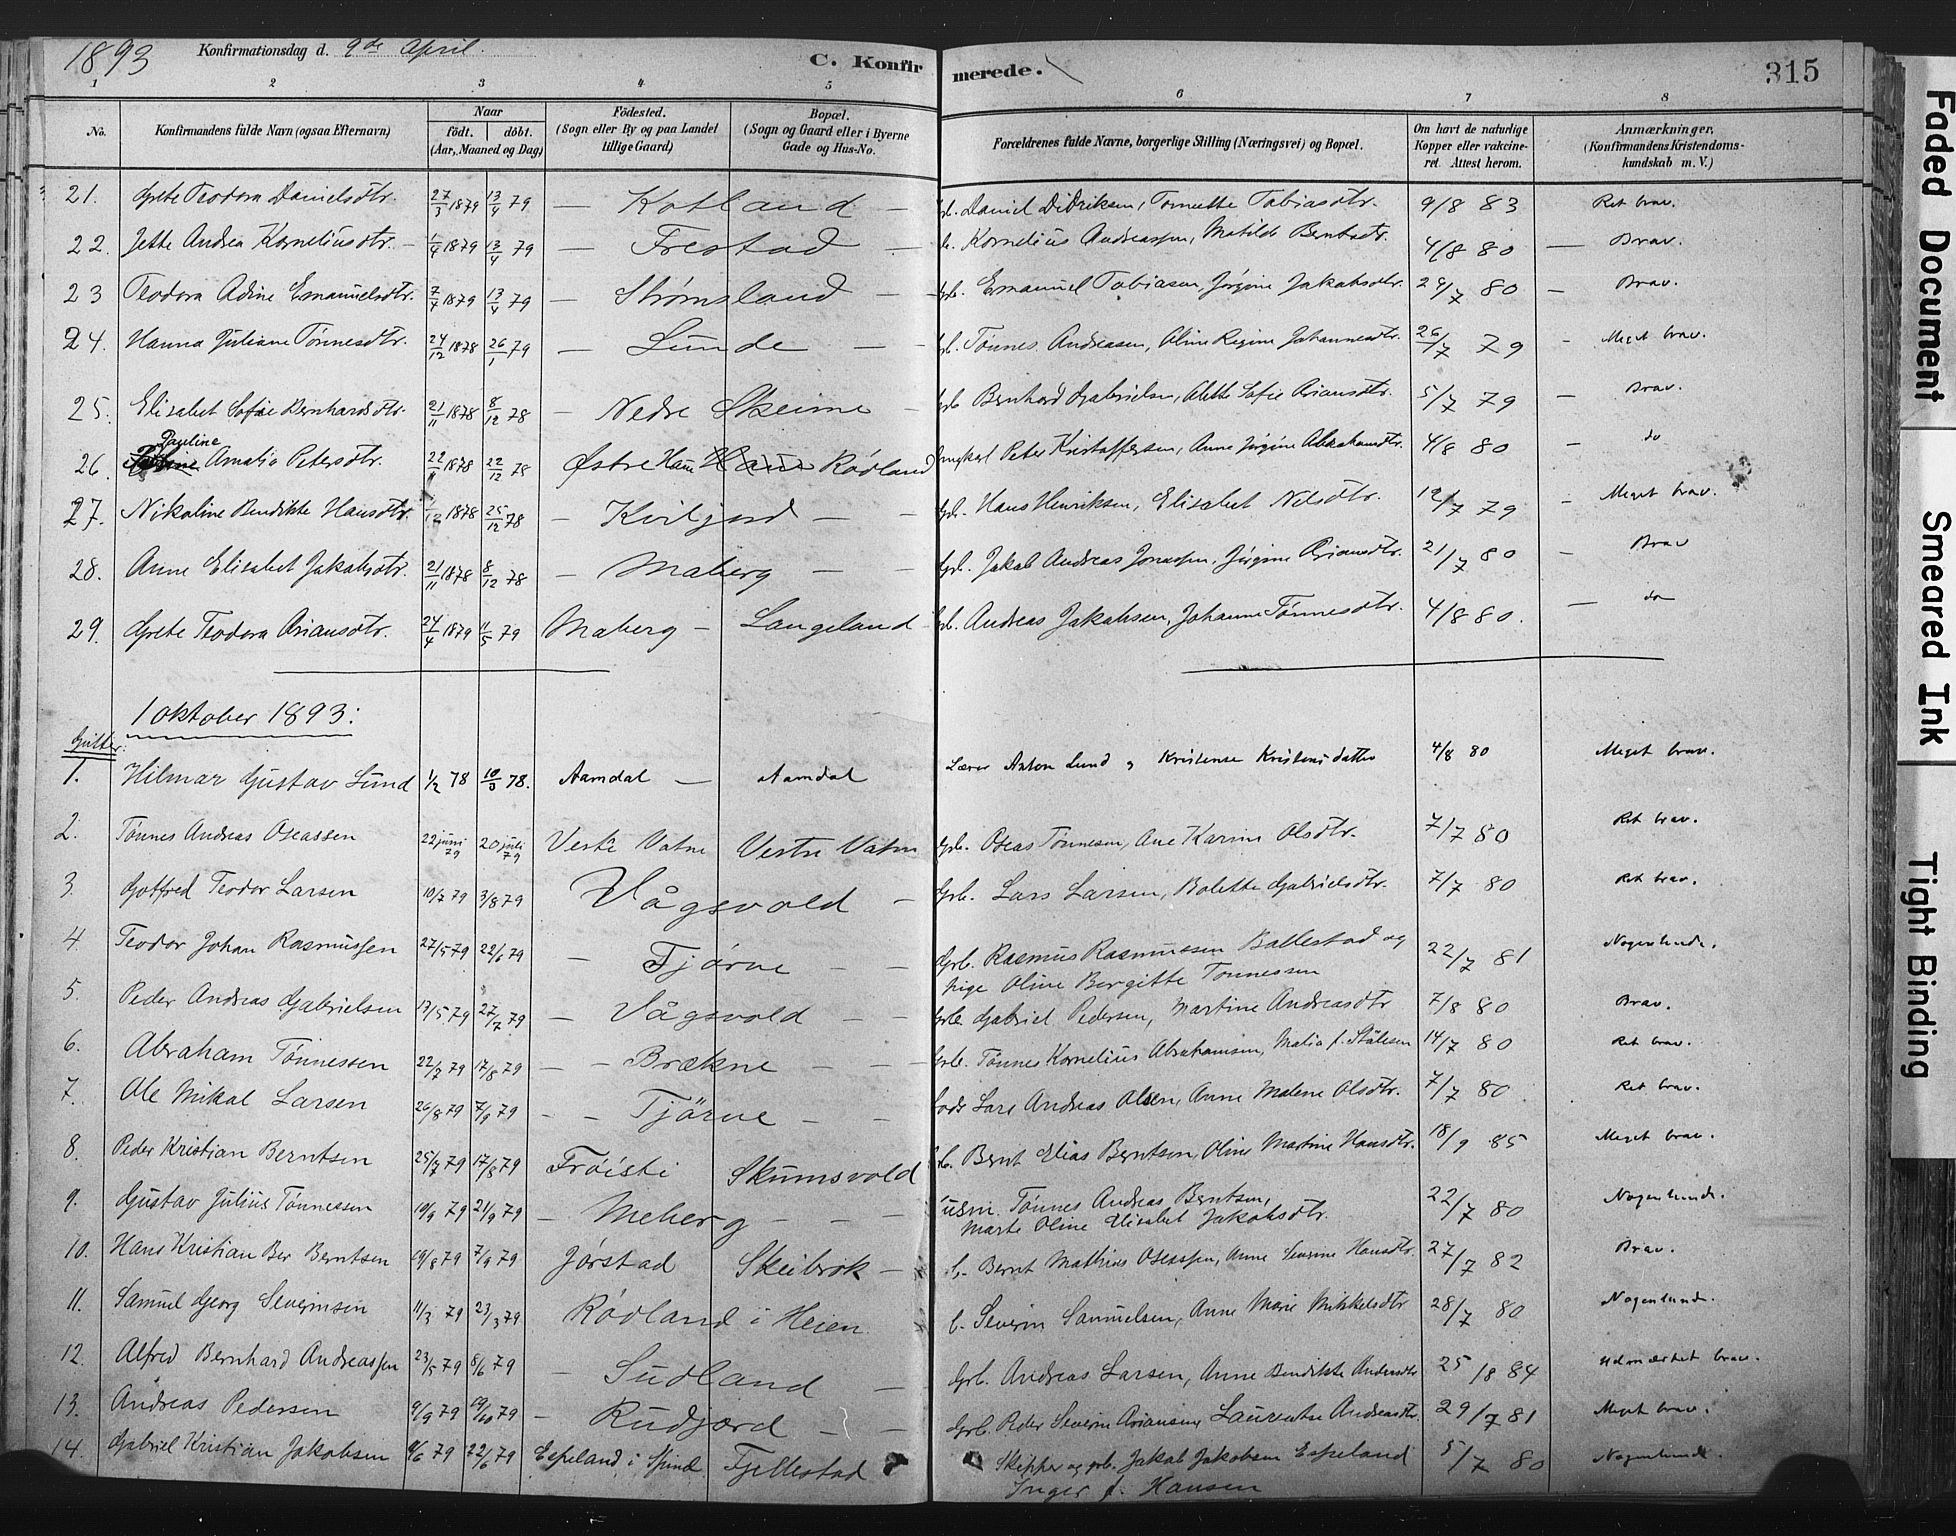 1893 Konfirmationsdag d. 9de April. C. Konfirmerede. 315
1 2 3 4 5 6 7 8
No. Konfirmandens fulde Navn (ogsaa Efternavn) Naar födt. döbt. (Aar, Maaned og Dag) Födested. (Sogn eller By og paa Landet tillige Gaard) Bopæl. (Sogn og Gaard eller i Byerne Gade og Hus-No. Forældrenes fulde Navne, borgerlige Stilling (Næringsvei) og Bopæl. Om havt de naturlige Kopper eller vakcineret. Attest herom. Anmærkninger, (Konfirmandens Kristendomskundskab m. V.)
21. Grete Teodora Danielsdtr. 27/3 1879 13/4 79 — Kotland — Daniel Didriksen, Tomette Tobiasdtr. 9/8 83 Ret brav.
22. Jette Andrea Korneliusdtr. — 1/4 1879 13/4 79 — Frestad — Kornelius Andreassen, Matilde Berntsdtr. 4/8 80 — Brav.
23 Teodora Adine Emanuelsdtr. 7/4 1879 13/4 79 — Strømsland — Grb. Emanuel Tobiasen, Jørgine Jakobsdtr. 29/7 80 — Brav.
24. Hanna Juliane Tønnesdtr. 24/12 1878 26/1 79 — Lunde — Grb. Tønnes Andreasen, Oline Regine Johannesdtr. 26/7 79 — Meget brav.
25. Elisabet Sofie Bernhardsdtr. 21/11 1878 8/12 78 — Nedre Skeime — Grb Bernhard Gabrielsen, Alette Sofie Ariansdtr. 5/7 79 — Brav.
26. Pauline Amalia Petersdtr. 1878 22/12 78 Østre Haue Rødland Peter Kristoffersen, Anne Jørgine Abrahamdtr. 4/8 80 — do
27. Nikoline Bendikte Hansdtr. 1878 25/12 78 — Kviljord — Grb. Hans Henriksen, Elisabet Nilsdtr. 12/7 79 — Meget brav.
28. Anne Elisabet Jakobsdtr. 21/11 1878 8/12 78 — Maberg — Grb. Jakob Andreas Jonassen, Jørgine Ariansdtr. 21/7 80 — Brav
29. Grete Teodora Ariansdtr. 24/4 1879 11/5 79 Maberg — Langeland Grb. Andreas Jakobsen, Johanne Tønnesdtr. 4/8 80. — do
1 oktober 1893:
Gutter:
1. Hilmar Gustav Lund 1/2 78 10/3 78. Aamdal — Aamdal Lærer Anton Lund og Kristense Kristensdatter 4/8 80 Meget brav.
2. Tønnes Andreas Oseassen 22 juni 79 20 juli 79 Vestre Vatne Vestre Vatne Grb. Oseas Tønnesen, Ane Karine Olsdtr. 7/7 80 Ret brav.
3. Gotfred Teodor Larsen 10/7 79 3/8 79 Vågsvold — Grb. Lars Larsen, Bolette Gabrielsdtr. 7/7 80 Ret brav.
4. Teodor Johan Rasmussen 27/5 79 22/6 79 — Tjørve — Grb. Rasmus Rasmussen Ballestad og
pige Oline Bergitte Tønnessen 22/7 81 Nogenlunde.
5. Peder Andreas Gabrielsen 17/5 79 27/7 79 — Vågsvold — Grb. Gabriel Pedersen, Martine Andreasdtr 7/8 80 Brav.
6. Abraham Tønnessen 22/7 79 17/8 79 — Brækne — Grb. Tønnes Kornelius Abrahamsen, Malia f. Stålesen 14/7 80 Ret brav.
7. Ole Mikal Larsen 26/8 79 7/9 79 — Tjörve — Lars Andreas Olsen, Anne Malene Olsdtr. 7/7 80 Ret brav.
8. Peder Kristian Berntsen 25/7 79 17/8 79 Frøisti Skumsvold Bernt Elias Berntsen, Oline Martine Hansdtr. 18/9 85 Meget brav.
9. Gustav Julius Tønnessen 10/9 79 21/9 79 — Meberg — Husm. Tønnes Andreas Berntsen,
Marte Oline Elisabet Jakobsdtr. 22/7 80 Nogenlunde.
10. Hans Kristian Ber Berntsen 19/8 79 7/9 79 Jørstad Skeibrok — Bernt Mathias Oseassen, Anne Severine Hansdtr. 27/7 82 Brav.
11. Samuel Georg Severinsen 11/3 79 23/3 79 Rødland i Heien Severin Samuelsen, Anne Marie Mikkelsdtr 28/7 80 Nogenlunde.
12. Alfred Bernhard Andreassen 23/5 79 8/6 79 — Sudland — Grb. Andreas Larsen, Anne Bendikte Andersdtr 25/8 84 Udmærket brav.
13. Andreas Pedersen 9/9 79 19/10 79 — Rudjord — Grb. Peder Severin Ariansen, Laurentse Andreasdtr. 29/7 81 Meget brav.
14. Gabriel Kristian Jakobsen 8/6 79 22/6 79 Espeland i Spind Fjellestad Skipper og grb. Jakob Jakobsen Espeland
Inger f. Hansen 5/7 80 Nogenlunde
Faded Document
Smeared Ink
Tight Binding